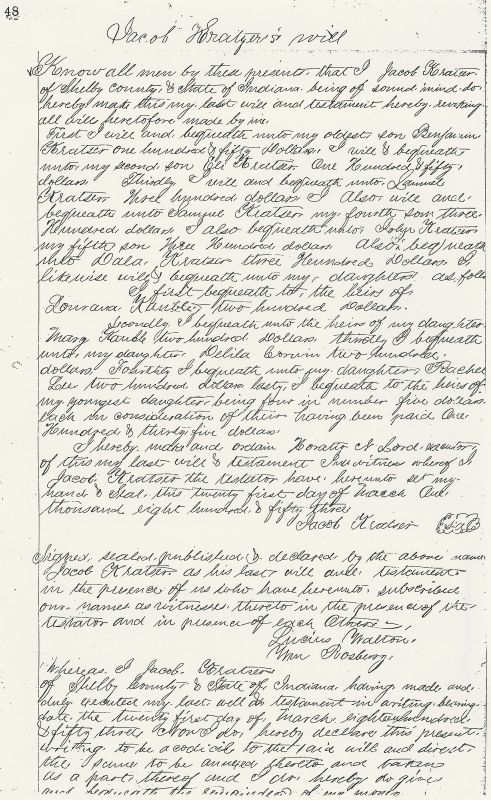 48
Jacob Kratzer's will
Know all men by these presents that I Jacob Kratser
of Shelby County & State of Indiana being of sound mind do
hereby make this my last will and testament hereby revoking
all wills heretofore made by me.
First I will and bequeath unto my oldest son Benjamin
Kratser one hundred & fifty Dollars. I will & bequeath
unto my second son Eli Kratser One Hundred & fifty
dollars Thirdly I will and bequeath unto Lamuel
Kratser three hundred dollars I Also will and
bequeath unto Samuel Kratser my fourth son three
Hundred dollars I also bequeath unto John Kratser
my fifth son three Hundred dollars Also beqeuath
unto Dala Kratser three Hundred Dollars I
likewise will & bequeath unto my daughters as follo
I first bequeath to the heirs of
Lourana Kamble two hundred Dollars.
Secondly I bequeath unto the heirs of my daughter
Mary Kamble two hundred Dollars thirdly I bequeath
unto my daughter Delila Corwin two hundred
dollars Fourthly I bequeath unto my daughter Rachel
Lee two hundred dollars lasty I bequeath to the heirs of
my youngest daughter being four in number five dollars
each in consideration of their having been paid One
Hundred & thirty five dollars
I hereby make and ordain Horatio N Lord executor
of this my last will & testament In witness whereof I
Jacob Kratser the testator have hereunto set my
hand & Seal this twenty first day of March One
thousand eight hundred & fifty three
Jacob Kratser
Signed sealed published & declared by the above name
Jacob Kratser as his last will and testament
in the presence of us who have hereunto subscribed
our names as witnesses thereto in the presence of the
testator and in presence of each other
Lucius Walton.
Wm Rosberry.
Whereas I Jacob Kratser
of Shelby County & State of Indiana having made and
duly executed my last will & testament in writing bearing
date the twenty first day of March eighteen hundred
& fifty three Now I do hereby declare this present
writing to be a codicil to the said will and direct
the same to be annexed thereto and taken
as a part thereof and I do hereby do give
and bequeath the remainder of my money